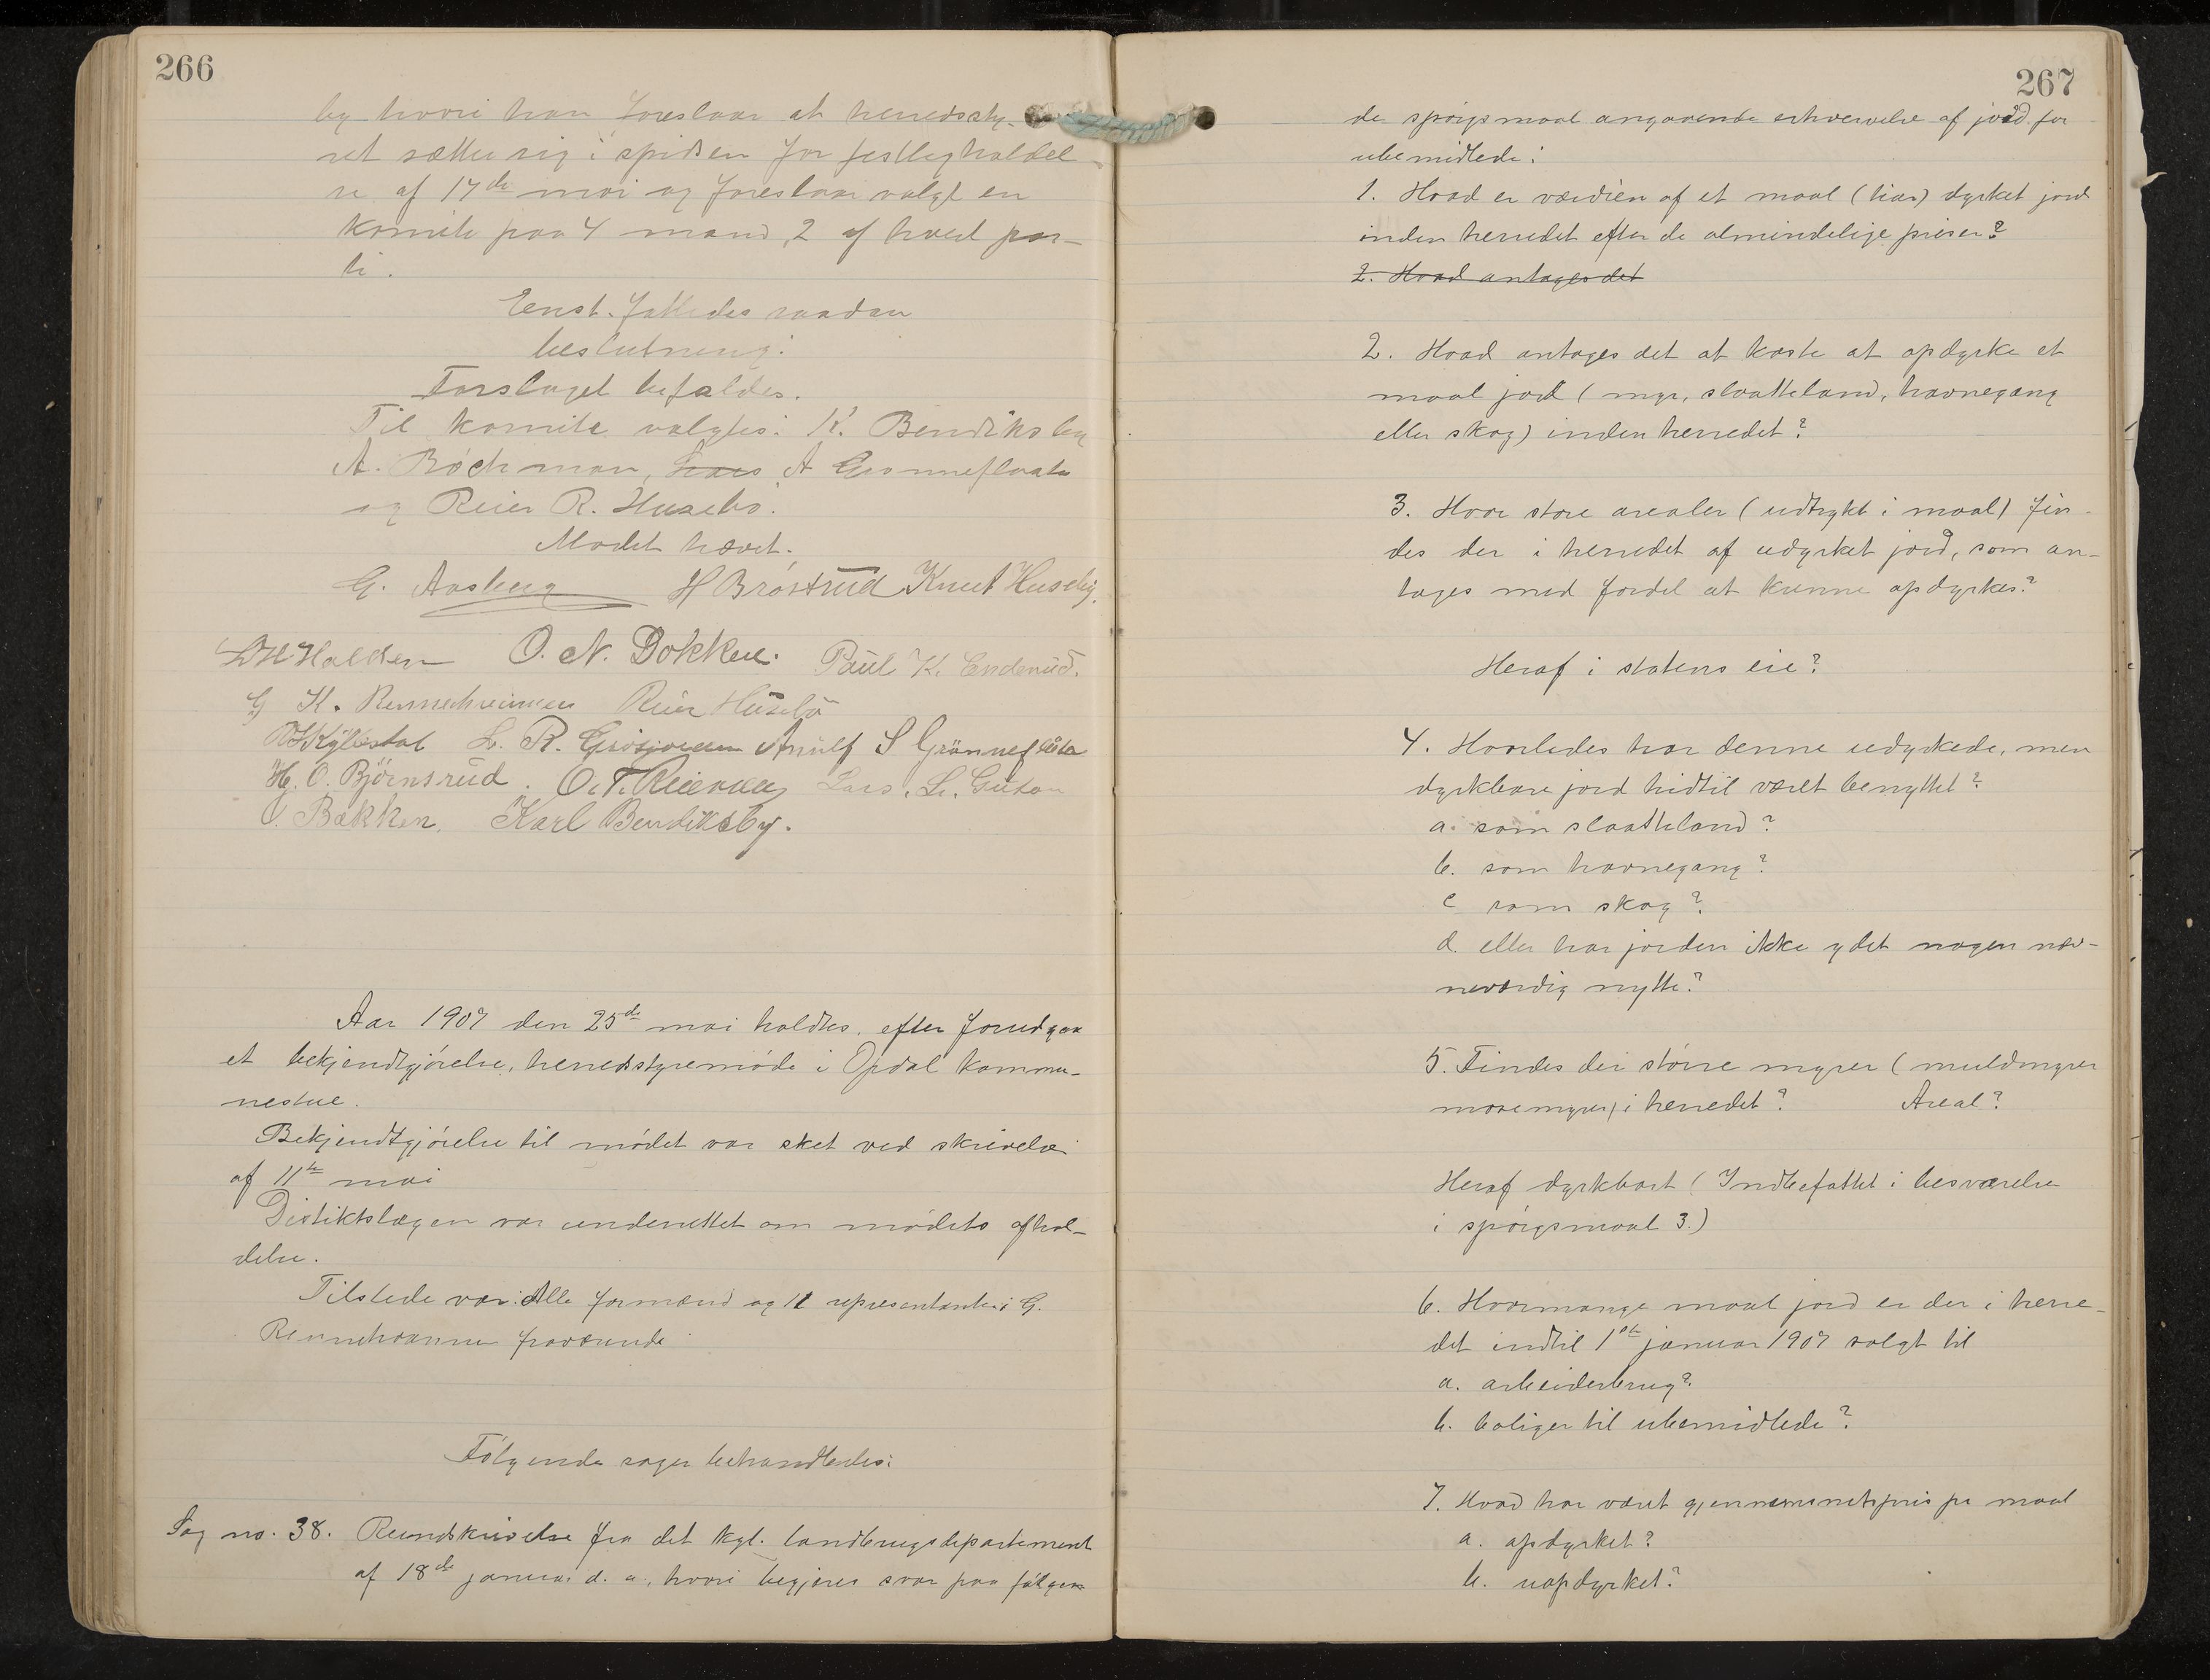 266
by hvori han foreslaar at herredssty-
ret sætter sig i spidsen for festlighaldel
se af 17de mai og foreslaar valgt en
komite paa 4 mand, 2 af hvert par-
ti.
Enst. fattedes saadan
beslutning:
Forslaget bifaldes.
Til komite valgtes: K. Bendiksby
A. Böckman, Lars A Grønneflaata
og Reier R. Husebø.
Mødet hævet.
G. Aasberg H Bröstrud Knut Huseby.
Halden O. N. Dokken. Paul K. Enderud.
G K. Rennehvammen Reier Husebø
L. R. Arnulf S Grönneflaata
H. O. Björnsrud. O. T. Reiersen Lars. L. Guton
O. Bakken. Karl Bendiksby.
Aar 1907 den 25de mai holdtes, efter forudgaa
et bekjendtgjörelse, herredsstyremöde i Opdal kommu-
nestue.
Bekjendtgjörelse til mödet var sket ved skrivelse
af 11te mai
Distiktslægen var underrettet om mödets afhol-
delse.
Tilstede var: Alle formænd og 11 repræsentanter: G.
Rennehvammen fraværende
Fölgende sager behandledes:
Sag no. 38. Rundskrivelse fra det kgl. landbrugsdepartement
af 18de januar d. a., hvori begjæres svar paa fölgen
267
de spörgsmaal angaaende erhvervelse af jord for
ubemidlede:
1. Hvad er værdien af et maal (tiar) dyrket jord
inden herredet efter de almindelige priser?
2. Hvad antages det
2. Hvad antages det at koste at opdyrke et
maal jord (myr, slaatteland, havnegang
eller skog) inden herredet?
3. Hvor store arealer (udtrykt i maal) fin-
des der i herredet af udyrket jord, som an-
tages med fordel at kunne opdyrkes?
Heraf i statens eie?
4. Hvorledes har denne udyrkede, men
dyrkbare jord hidtil været benyttet?
a. som slaatteland?
b. som havnegang?
c som skog?
d. eller har jorden ikke ydet nogen næv-
neværdig nytte?
5. Findes der större myrer (muldmyrer
mosemyrer) i herredet? Areal?
Heraf dyrkbart (Indbefattet i besvarelse
i spörgsmaal 3.)
6. Hvormange maal jord er der i herre-
det indtil 1ste januar 1907 solgt til
a. arbeiderbrug?
b. boliger til ubemidlede?
7. Hvad har været gjennemsnitspris pr maal
a. opdyrket?
b. uopdyrket?